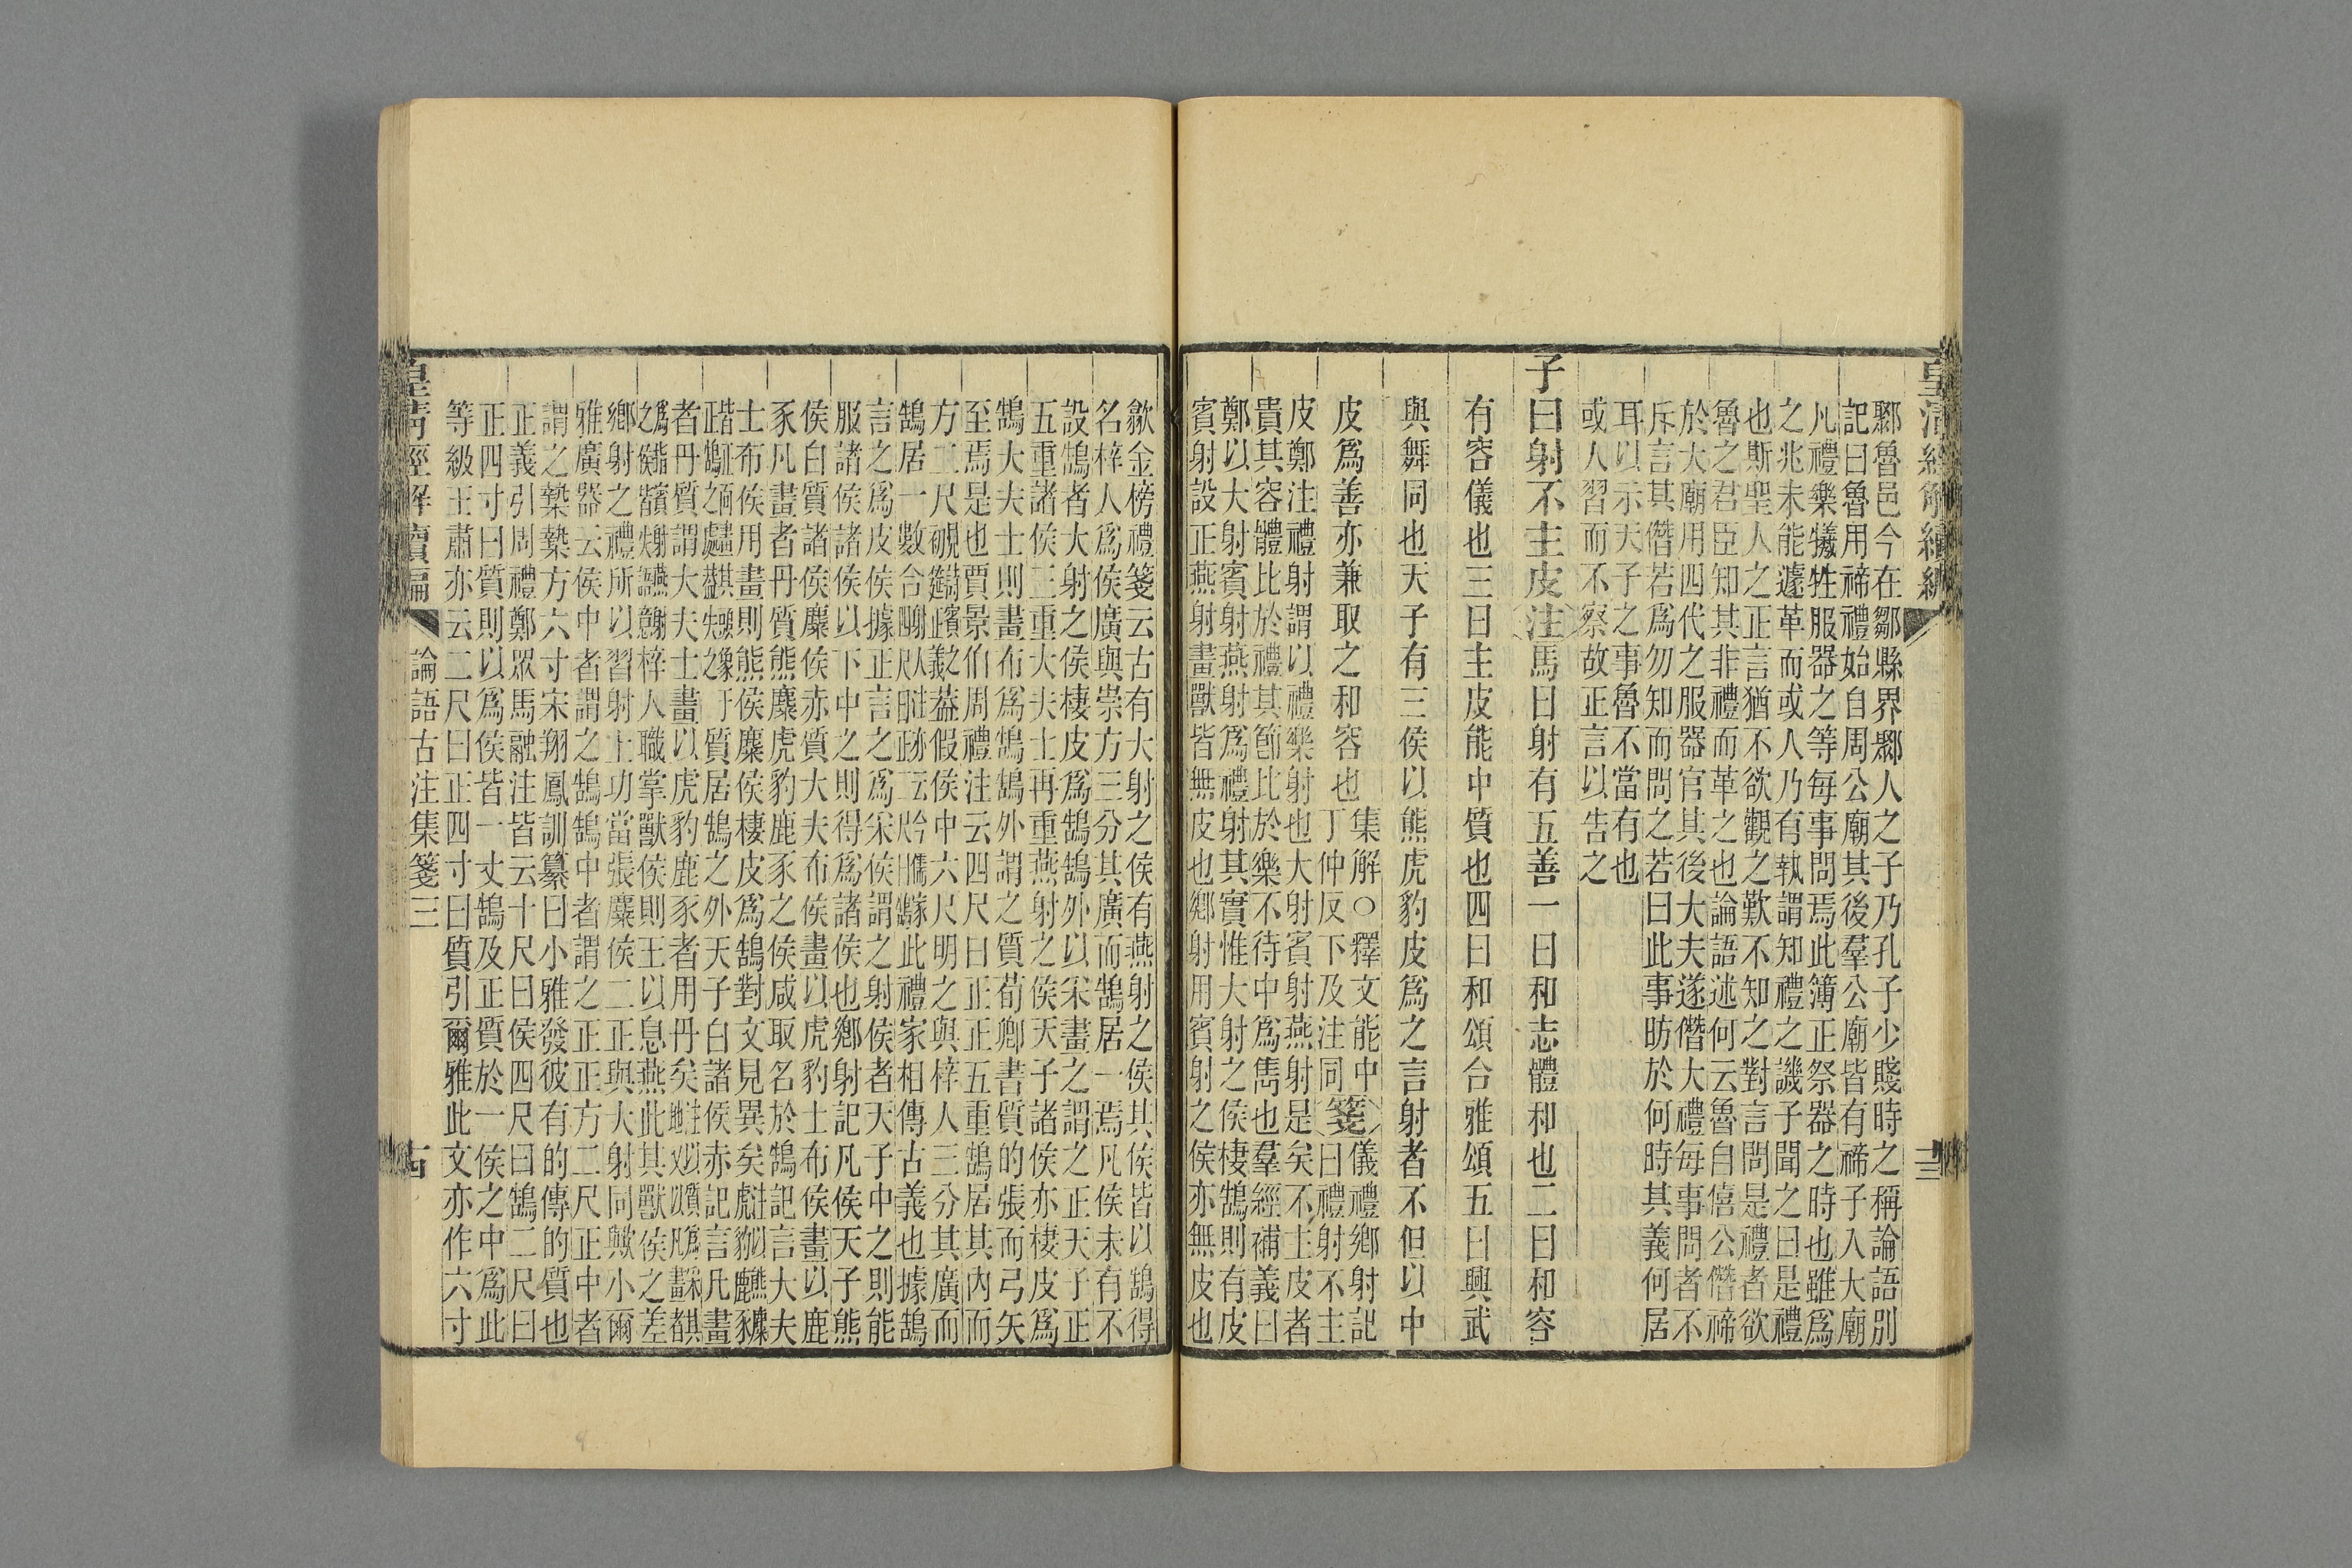 鄹魯邑今在鄒縣界鄹人之子乃孔子少賤時之稱論語別
記曰魯用禘禮始自周公廟其後羣公廟皆有禘子入大廟
凡禮樂犧牲服器之等每事問焉此簿正祭器之時也雖爲
之兆未能遽革而或人乃有執謂知禮之譏子聞之曰是禮
也斯聖人之正言猶不欲觀之歎不知之對言問是禮者欲
魯之君臣知其非禮而革之也論語述何云魯自僖公僭禘
於大廟用四代之服器官其後大夫遂僭大禮每事問者不
斥言其僭若爲勿知而問之若曰此事昉於何時其義何居
耳以示天子之事魯不當有也
或人習而不察故正言以告之
子曰射不主皮注馬曰射有五善一曰和志體和也二曰和容
有容儀也三曰主皮能中質也四曰和頌合雅頌五曰興武
與舞同也天子有三侯以熊虎豹皮爲之言射者不但以中
皮爲善亦兼取之和容也
集解○釋文能中
丁仲反下及注同
箋
儀禮鄉射記
曰禮射不主
皮鄭注禮射謂以禮樂射也大射賓射燕射是矣不主皮者
貴其容體比於禮其節比於樂不待中爲雋也羣經補義曰
鄭以大射賓射燕射爲禮射其實惟大射之侯棲鵠則有皮
賓射設正燕射畫獸皆無皮也鄉射用賓射之侯亦無皮也
皇清經解續編
歙金榜禮箋云古有大射之侯有燕射之侯其侯皆以鵠得
名梓人爲侯廣與崇方三分其廣而鵠居一焉凡侯未有不
設鵠者大射之侯棲皮爲鵠鵠外以采畫之謂之正天子正
五重諸侯三重大夫士再重燕射之侯天子諸侯亦棲皮爲
鵠大夫士則畫布爲鵠鵠外謂之質荀卿書質的張而弓矢
至焉是也賈景伯周禮注云四尺曰正正五重鵠居其內而
方二尺
侯中六尺明之與梓人三分其廣而
鵠居一數合
此禮家相傳古義也據鵠
言之爲皮侯據正言之爲采侯謂之射侯者天子中之則能
服諸侯諸侯以下中之則得爲諸侯也鄉射記凡侯天子熊
侯白質諸侯麋侯赤質大夫布侯畫以虎豹士布侯畫以鹿
豕凡畫者丹質熊麋虎豹鹿豕之侯咸取名於鵠記言大夫
士布侯用畫則熊侯麋侯棲皮爲鵠對文見異矣
質居鵠之外天子白諸侯赤記言凡畫
者丹質謂大夫士畫以虎豹鹿豕者用丹矣
梓人職掌獸侯則王以息燕此其獸侯之差
鄉射之禮所以習射上功當張麋侯二正與大射同歟小爾
雅廣器云侯中者謂之鵠鵠中者謂之正正方二尺正中者
謂之槷槷方六寸宋翔鳳訓纂曰小雅發彼有的傳的質也
正義引周禮鄭眾馬融注皆云十尺曰侯四尺曰鵠二尺曰
正四寸曰質則以爲侯皆一丈鵠及正質於一侯之中爲此
等級王肅亦云二尺曰正四寸曰質引爾雅此文亦作六寸
論語古注集箋三